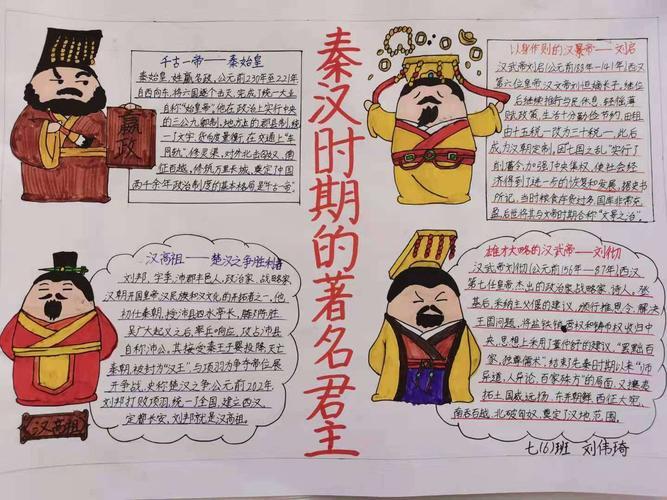 秦汉时期的著名君主
千古一帝——秦始皇
秦始皇,姓嬴名政,公元前230年至221年
自西向东,将六国逐个击灭,完成了统一大业
自称"始皇帝"。他在政治上实行中央
的三公九卿制,地方上的郡县制,统
一了文字,货币度量衡,在交通上"车
同轨",修灵渠,对外北击匈奴,南
征百越,修筑万里长城,奠定了中国
两千余年政治制度的基本格局,是"千古一帝"
嬴政
以身作则的汉景帝——刘启
汉武帝刘启(公元前188年—141年)西汉
第六位皇帝,汉文帝刘恒嫡长子,继位
后继续推行与民休息,轻徭薄
赋政策,生活十分勤俭节约,田租
由十五税一改为三十税一,此后
成为汉朝定制,因七国之乱"实行了
削藩令,加强了中央集权,使社会经
济得到了进一步的恢复和发展,据史书
所记,当时粮食存货讨多,国库非常充
盈,后世将其与文帝时期合称"文景之治"。
汉高祖——楚汉之争胜利者
刘邦,字季,沛郡丰邑人,政治家、战略家,
汉朝开国皇帝,汉民族和汉文化的开拓者之一,他
初仕秦朝,授沛县四水亭长,
吴广大起义之后,率兵响应,攻占沛县
自称沛公,其接受秦王子婴投降,灭亡
秦朝,被封为"汉王",与项羽为争夺帝位展
开争战,史称楚汉之争,公元前202年
刘邦打败项羽,统一全国,建立西汉,
定都长安,刘邦就是汉高祖。
汉高祖
雄才大略的汉武帝——刘彻
汉武帝刘彻(公元前156年—87年)西汉
第七任皇帝,杰出的政治家,战略家,诗人,登
基后,采纳主父偃的建议,颁行推恩令,解决
王国问题,将盐铁 和铸币权收归中
央,思想上采用了董仲舒的建议,"罢黜百
家,独尊儒术",结束了先秦时期以来"师
异道,人异论,百家殊方"的局面,又攘夷
拓土国威远扬,东并朝鲜,西征大宛,
南吞百越,北破匈奴,奠定了汉地范围。
七(6)班 刘伟琦